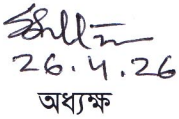 26.4.26
অধ্যক্ষ